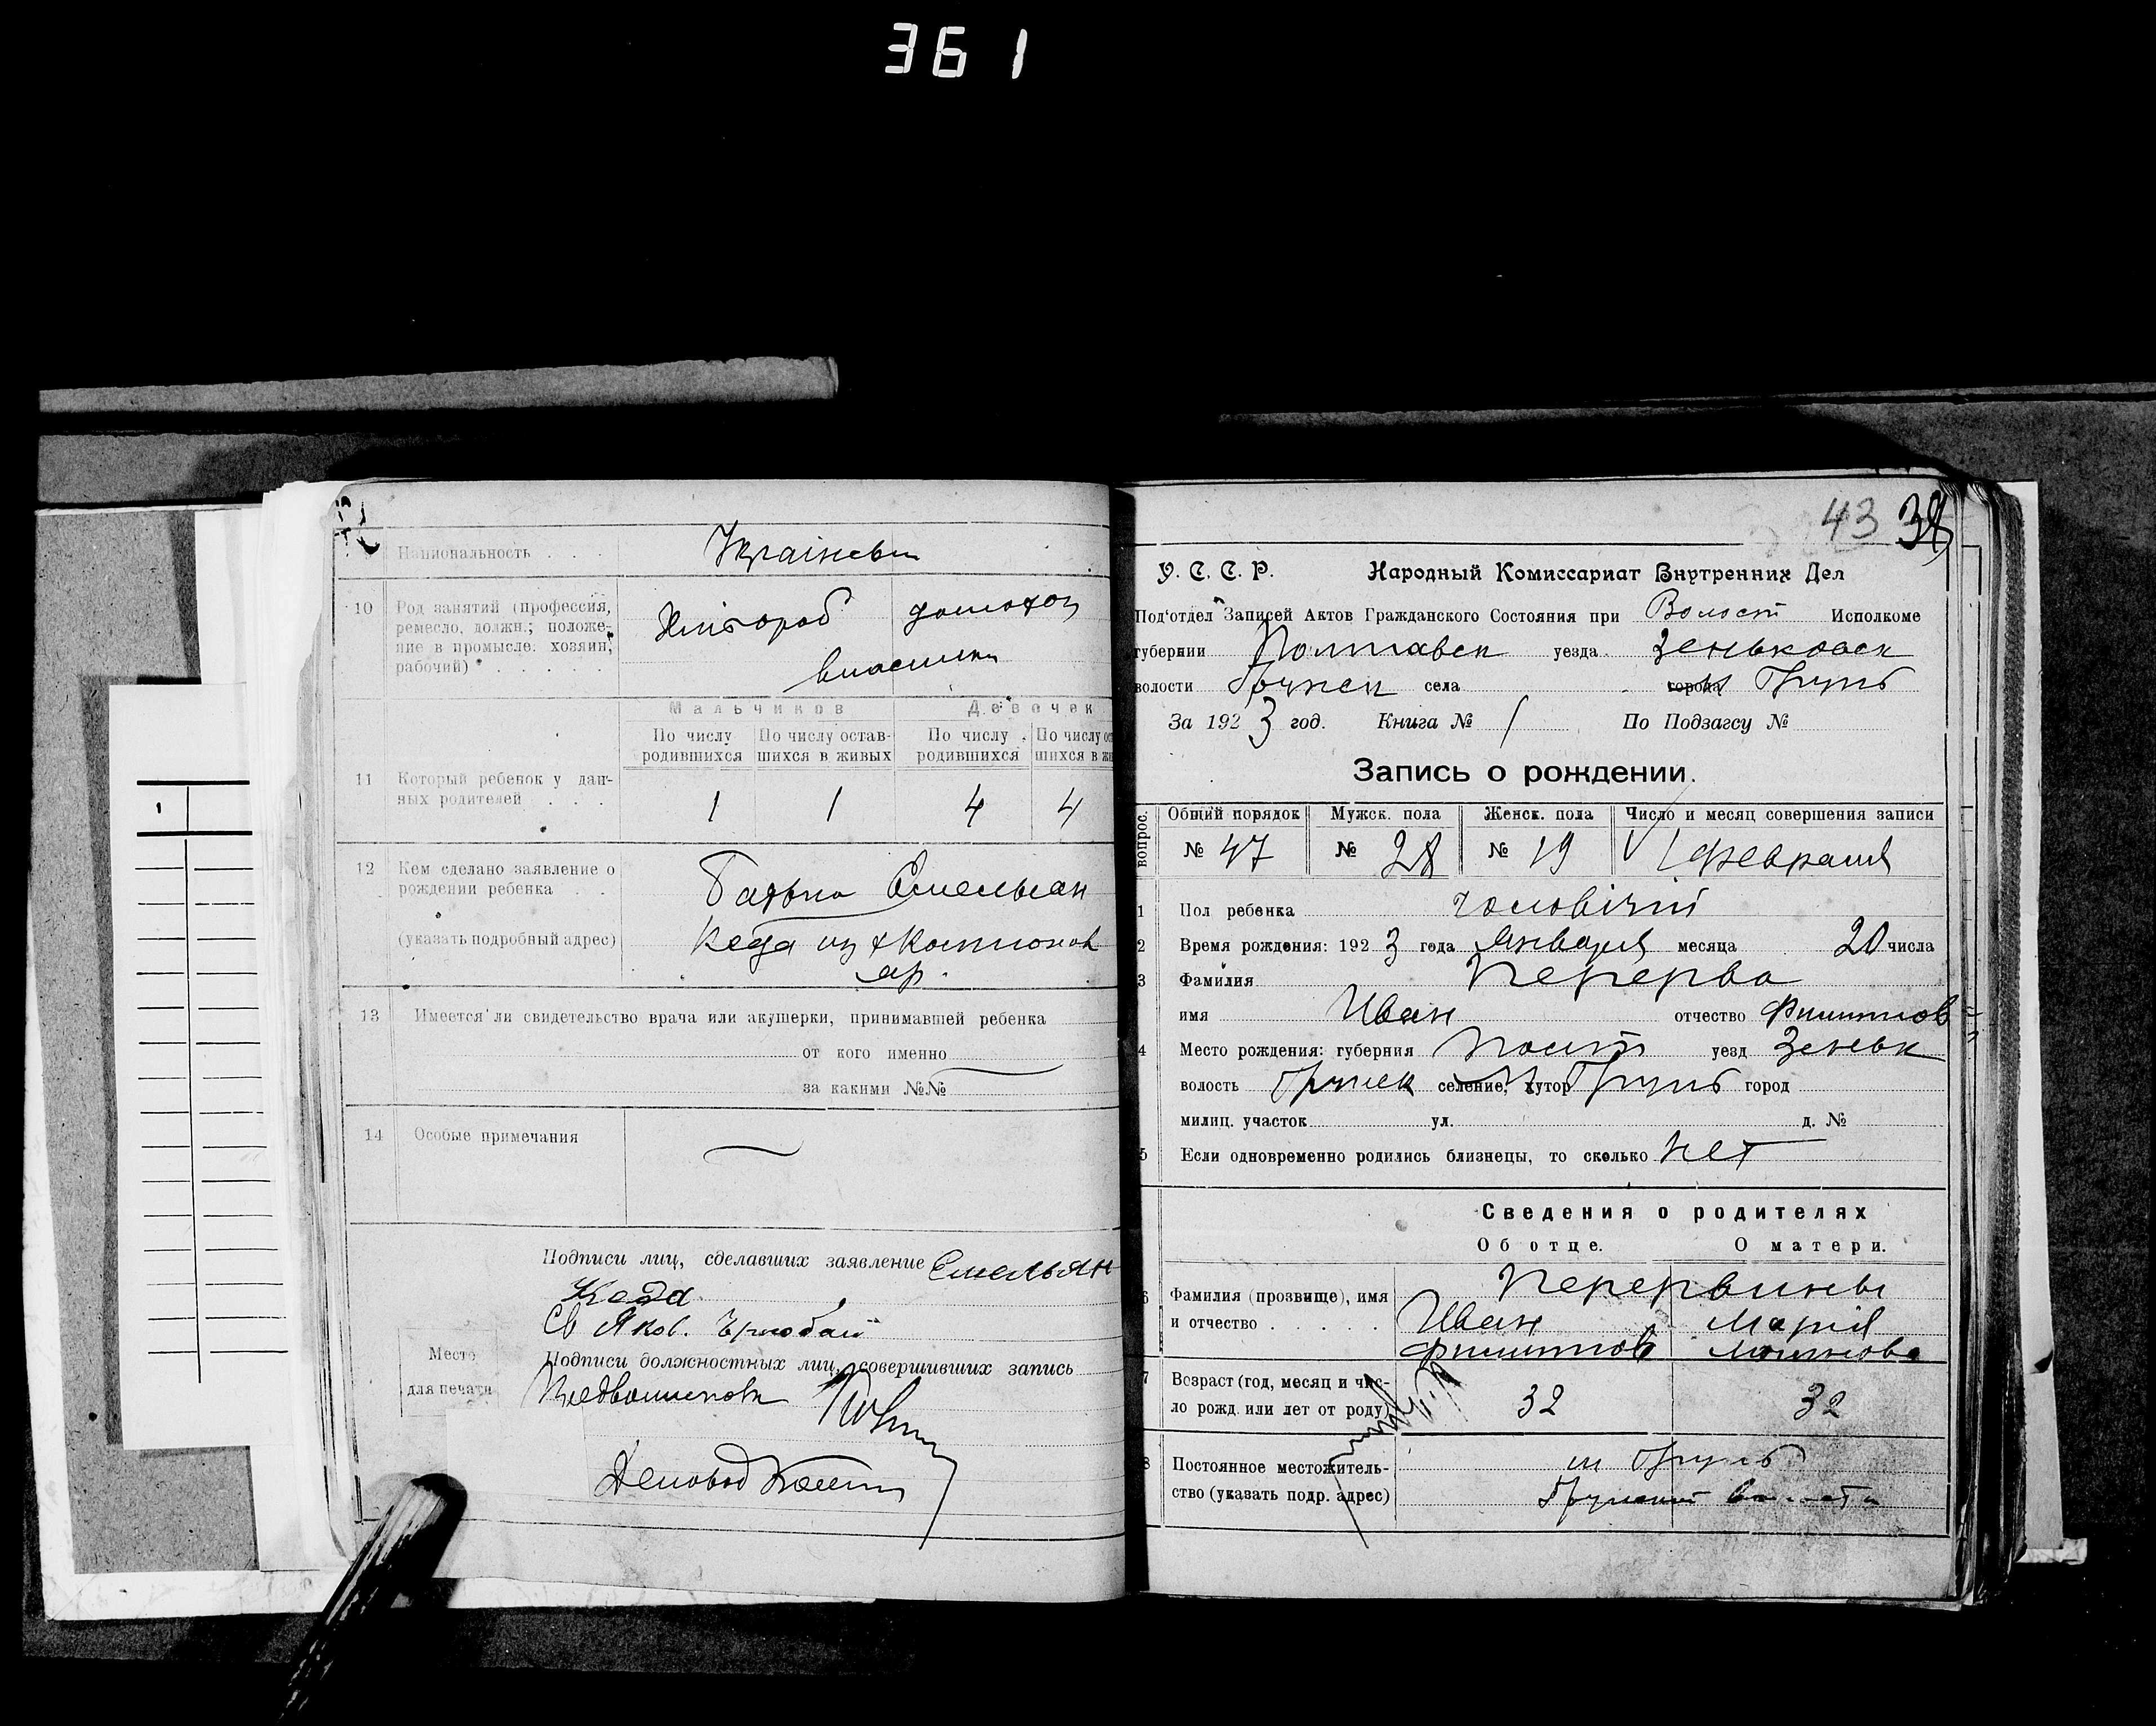 361
Национальность . . . Українсьи
10 Род занятий (профессия, ремесло, должн.; положение в промысле: хозяин, рабочий) . . . . . Хлібороб
Мальчиков Девочек
По числу родившихся По числу оставшихся в живых По числу родившихся По числу
11 Который ребенок у данных родителей . . . 1 1 4 4
12 Кем сделано заявление о рождении ребенка . . Батько Емельян
(указать подробный адрес) Кеда из
13 Имеется ли свидетельство врача или акушерки, принимавшей ребенка
от кого именно
за какими №№
14 Особые примечания
Подписи лиц, сделавших заявление Емельян
Кеда
Св Яков.
Место для печати
Подписи должностных лиц, совершивших запись
Деловод
43 38
У. С. С. Р. Народный Комиссариат Внутренних Дел
Под'отдел Записей Актов Гражданского Состояния при Волост Исполкоме
губернии Полтавск уезда Зеньковск
волости села города м Грунь
За 1923 год. Книга № 1 По Подзагсу №
Запись о рождении.
вопрос. Общий порядок Мужск. пола Женск. пола Число и месяц совершения записи
№ 47 № 28 № 19 1 февраля
1 Пол ребенка чоловічий
2 Время рождения: 1923 года Января месяца 20 числа
3 Фамилия Перерва
имя Иван отчество Филиппов
4 Место рождения: губерния Полт уезд Зеньк
волость Грунск селение, хутор м Грунь город
милиц. участок ул. д. №
5 Если одновременно родились близнецы, то сколько нет
Сведения о родителях
Об отце. О матери.
6 Фамилия (прозвище), имя Перервины
и отчество . . . . . Иван Мария
Филиппов
7 Возраст (год, месяц и число рожд. или лет от роду) 32 32
8 Постоянное местожительство (указать подр. адрес) м Грунь
Грунской волости